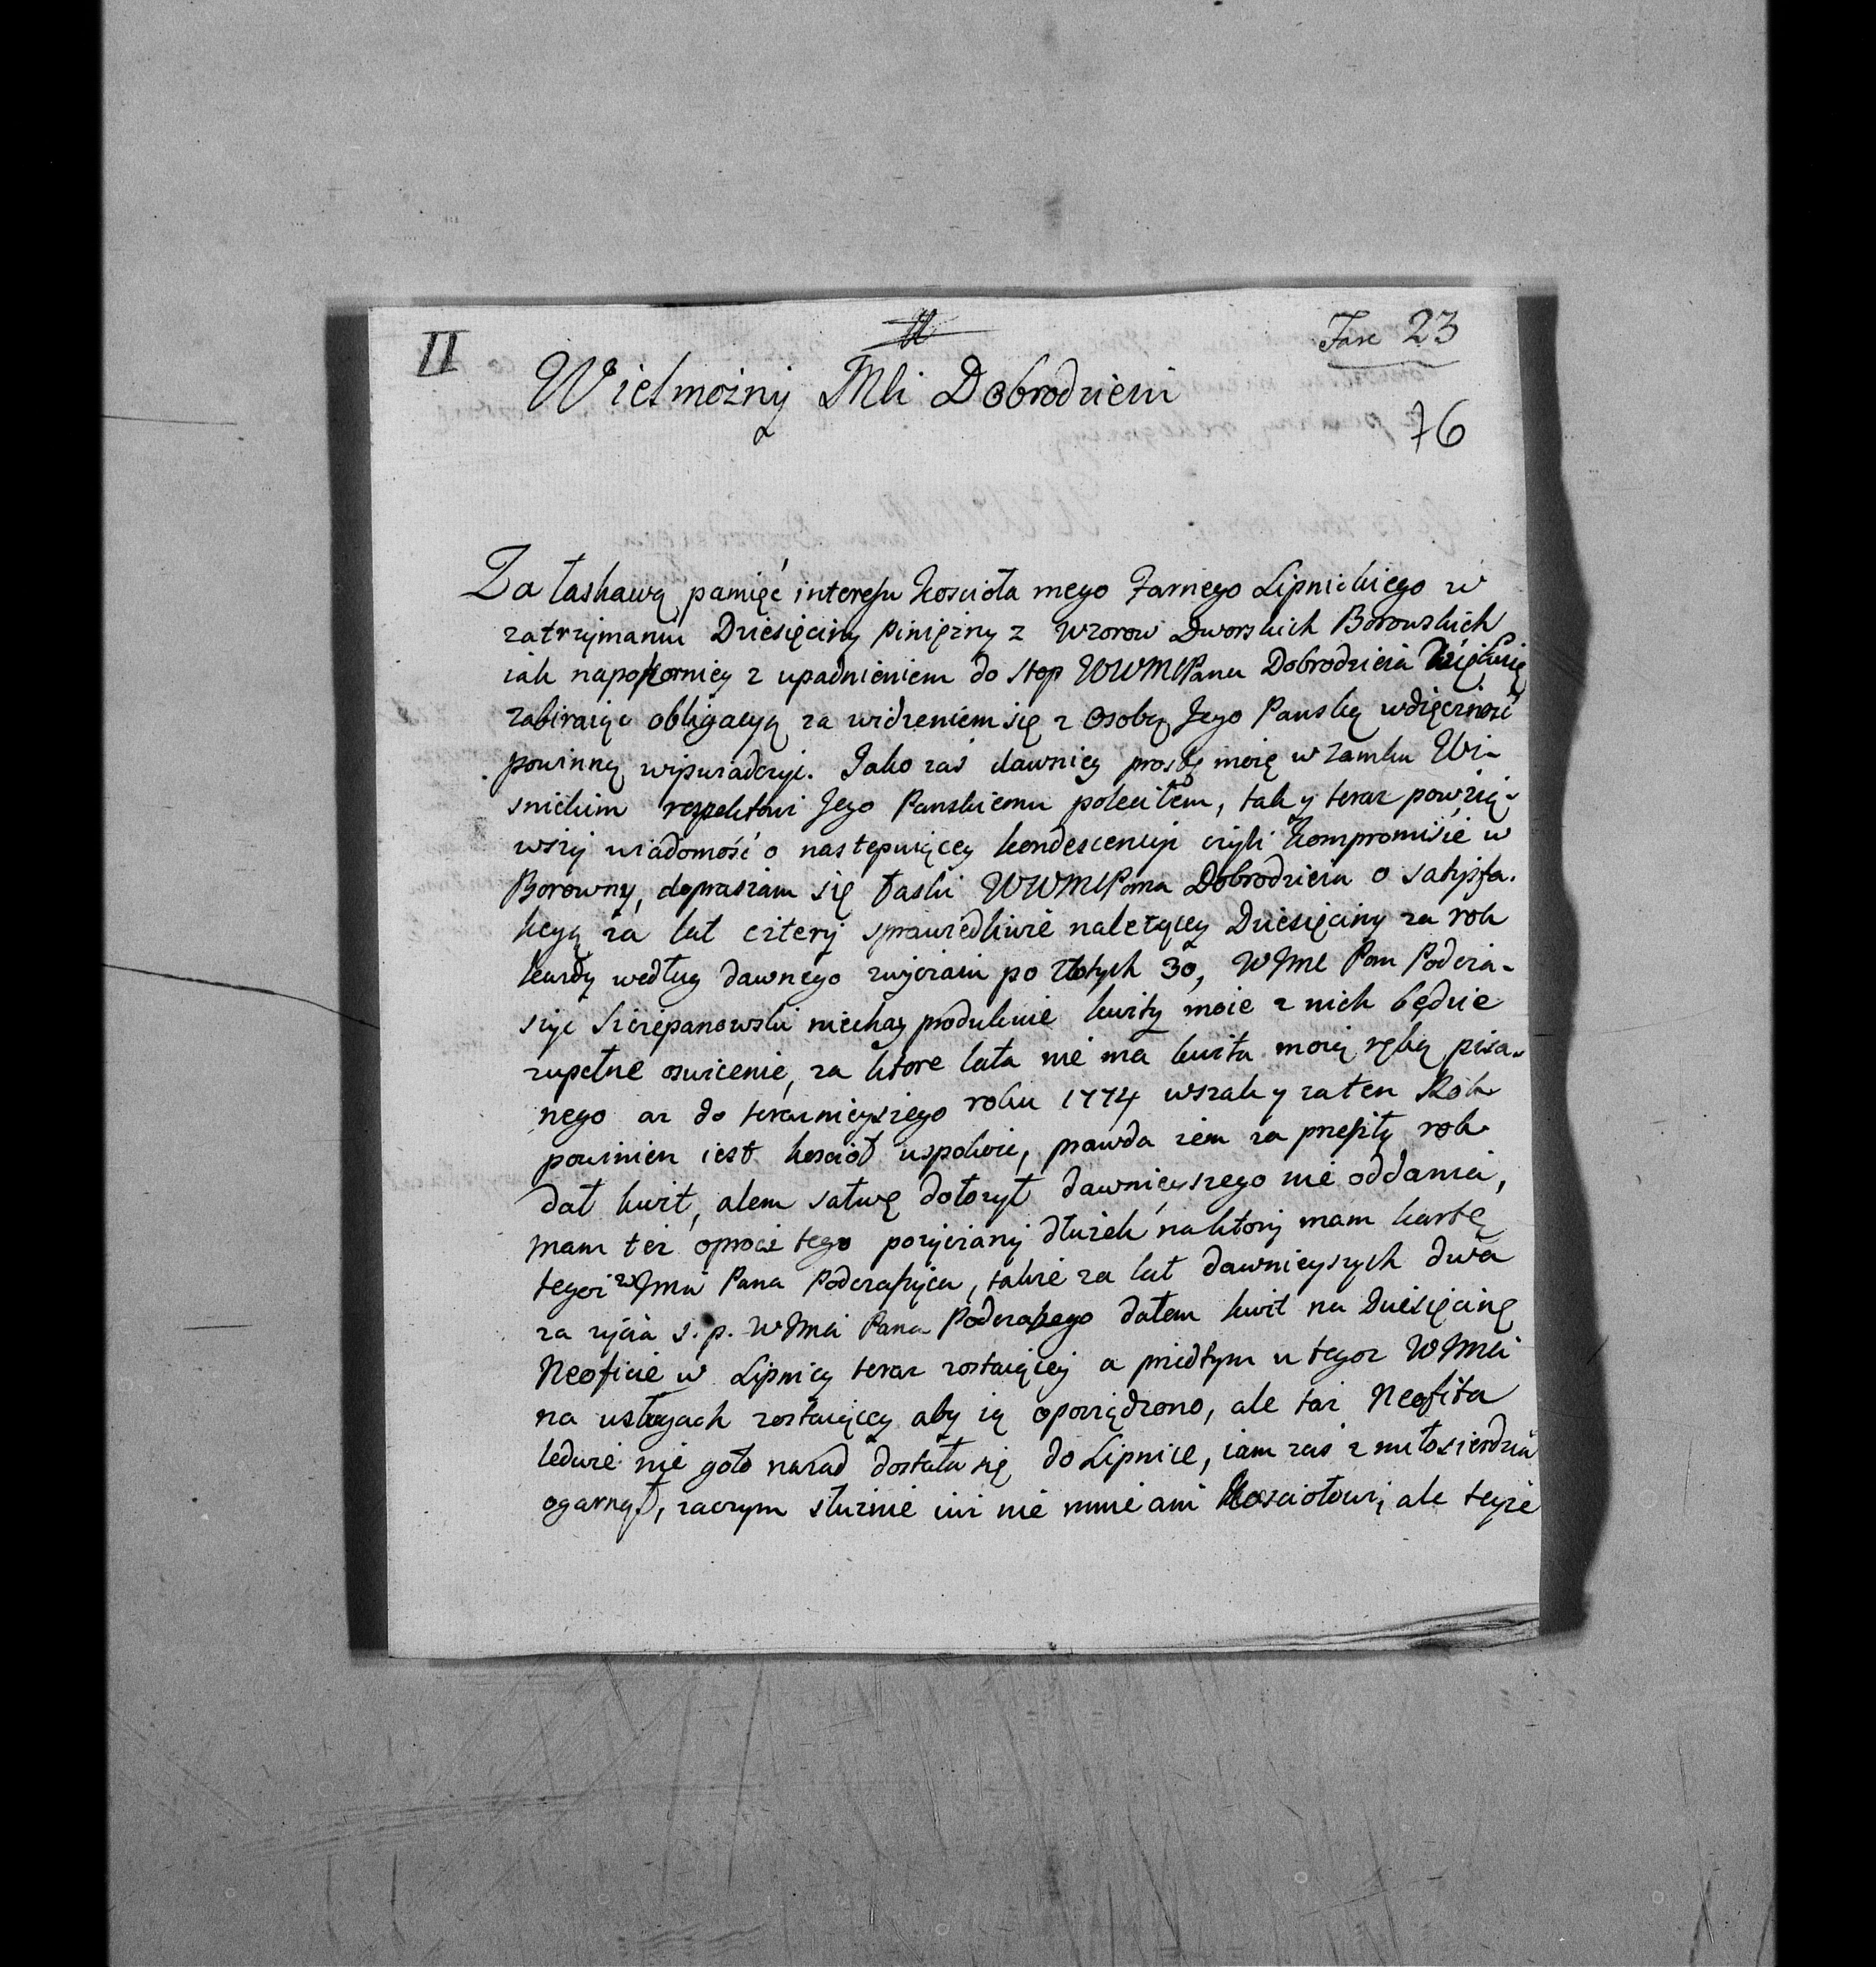 II
Fasc 23
Wielmożny Mli Dobrodzieiu
76
Za łaskawą pamięć interessu koscioła mego Farnego Lipnickiego w
zatrzymaniu Dziesięciny pinięzny z Wzorow Dworskich Borowskich
iak napokorniey z upadnieniem do stop WWMPana Dobrodzieia Dziękuię
zabiraiąc obligacyą za widzeniem się z Osobą Jego Panską wdięczność
powinną wypwiadczyc. Jako zaś dawniey prosbę moię w zamku Wi-
snickim respektowi Jego Panskiemu poleciłem, tak y teraz powzią-
wszy wiadomość o następuiącey kondescencyi czyli kompromisie w
Borowny, dopraszam się łaski WWMPana Dobrodzieia o satysfa-
kcyą za lat cztery sprawiedliwie należącey Dziesięciny za rok
każdy według dawnego zwyczaiu po złotych 30, WJmc Pan Podcza-
szyc Sczepanowski niechay produkuie kwity moie z nich będzie
zupełne oswicenie, za ktore lata nie ma kwitu moią ręką pisa-
nego az do teraznieyszego roku 1774 wszak y za ten Rok
powinien iest kosciół uspokoic, prawda żem za przeszły rok
dał kwit, alem salwę dołozył dawnieyszego nie oddania,
mam też oprocz tego pozyczany dłużek na ktory mam kartę
tegoż WJmci Pana Podczaszyca, także za lat dawnieyszych dwa
za zycia s. p. WJmci Pana Podczaszego dałem kwit na Dziesięcinę
Neoficie w Lipnicy teraz zostaiącey a przedtym u tegoz WJmci
na usługach zostaiącey aby ią oporządzono, ale taż Neofita
ledwie nie goło nazad dostała się do Lipnice, iam zaś z miłosierdzia
ogarnął, zaczym słusznie iuż nie mnie ani kosciołowi, ale teyże